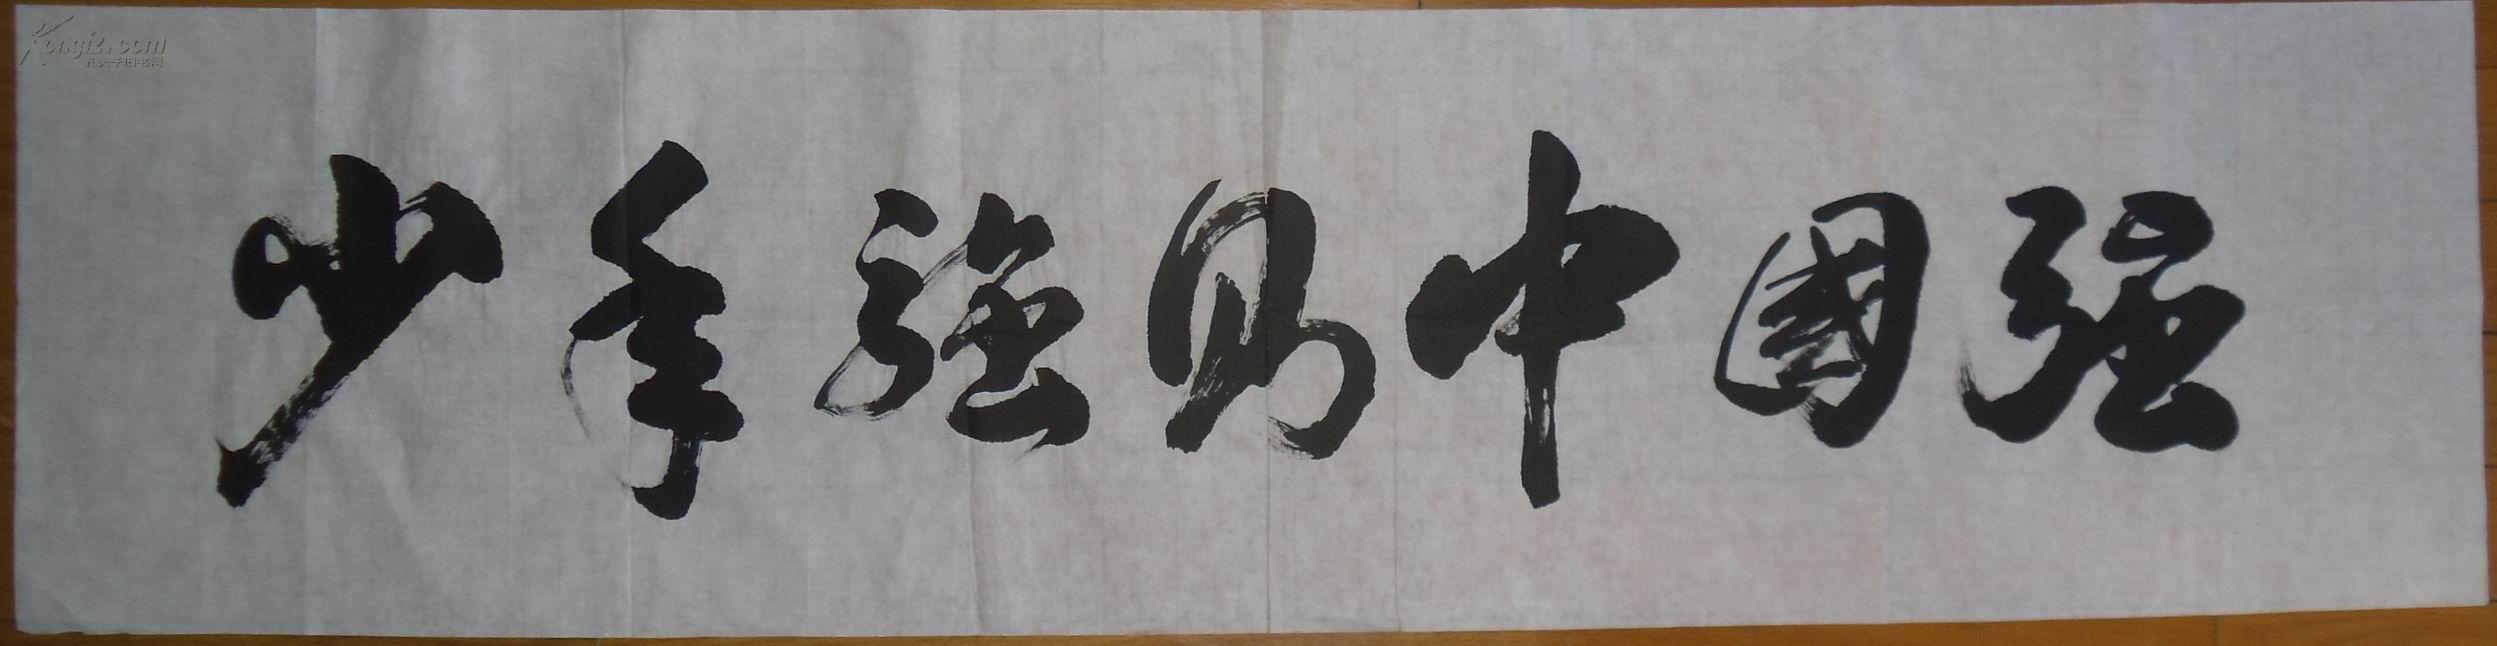 Kongfz.com
孔夫子旧书网
少年強則中國強